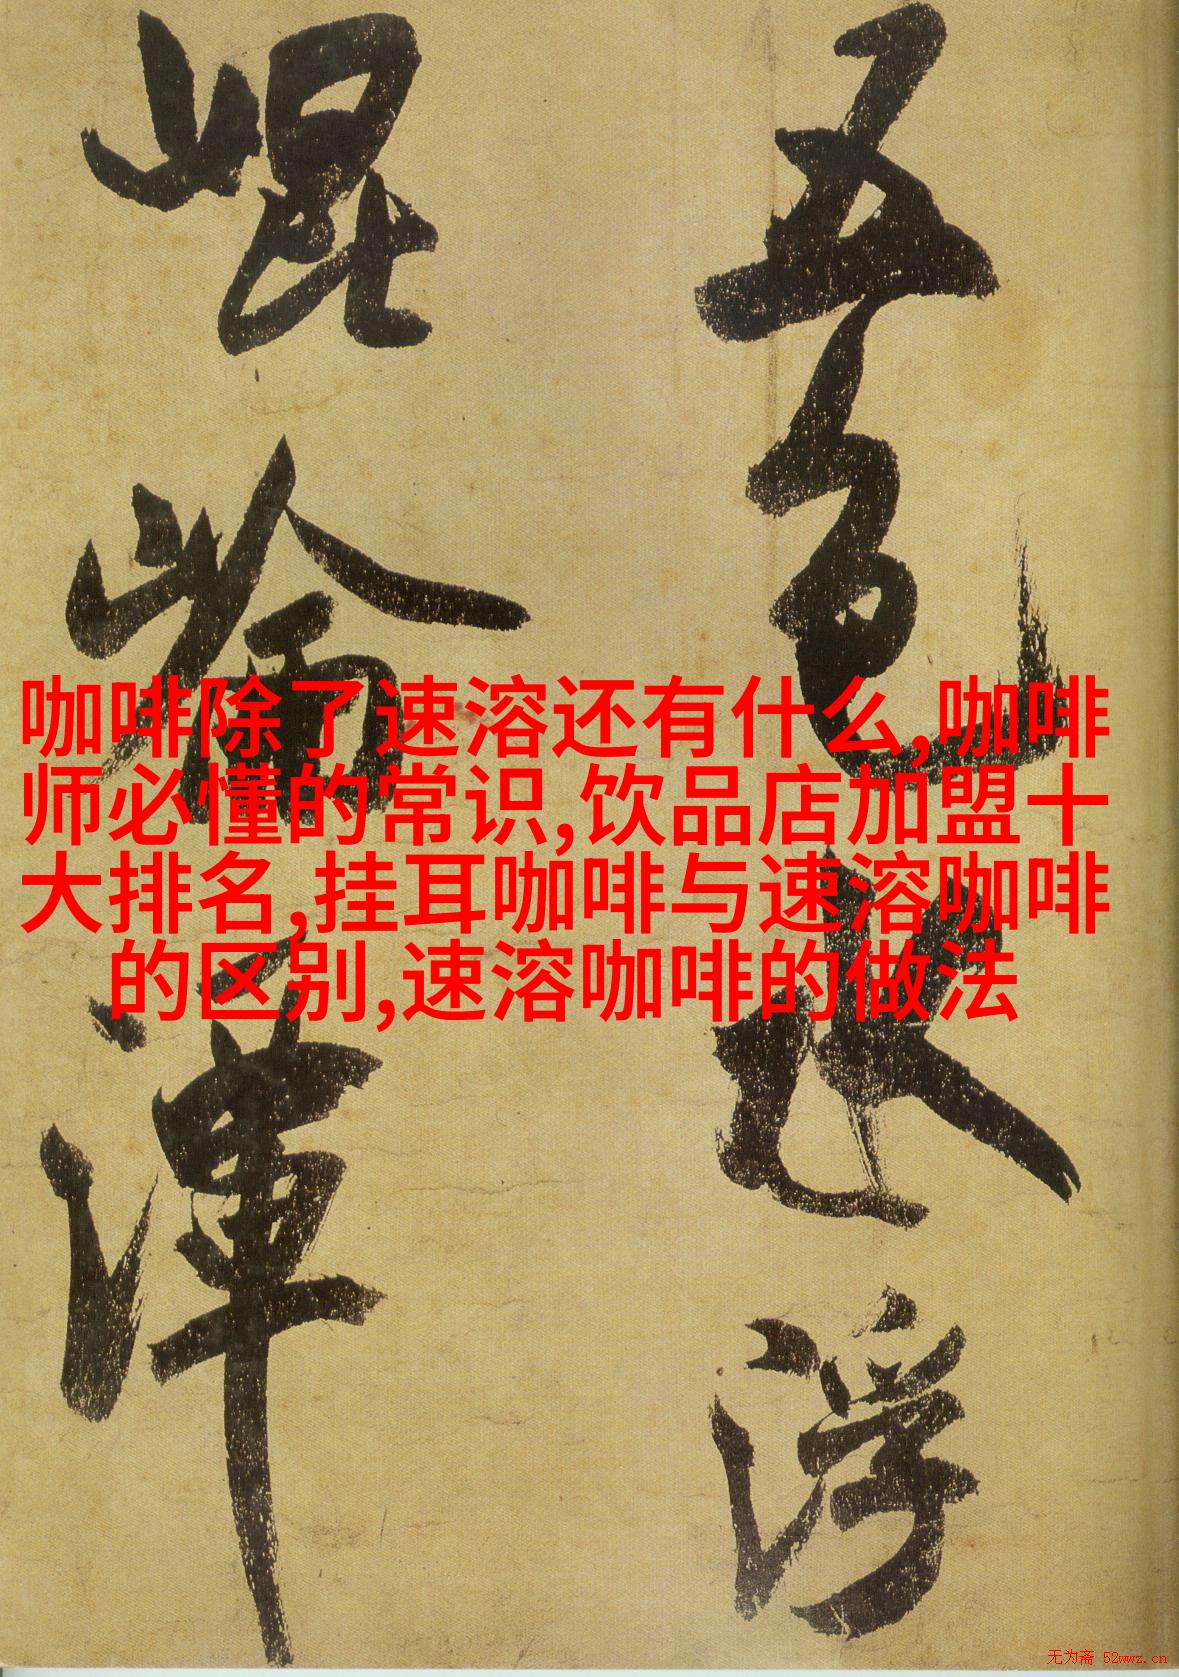 五色水浮
崐崘渾
咖啡除了速溶还有什么,咖啡
师必懂的常识,饮品店加盟十
大排名,挂耳咖啡与速溶咖啡
的区别,速溶咖啡的做法
无为斋 52wwz.cn